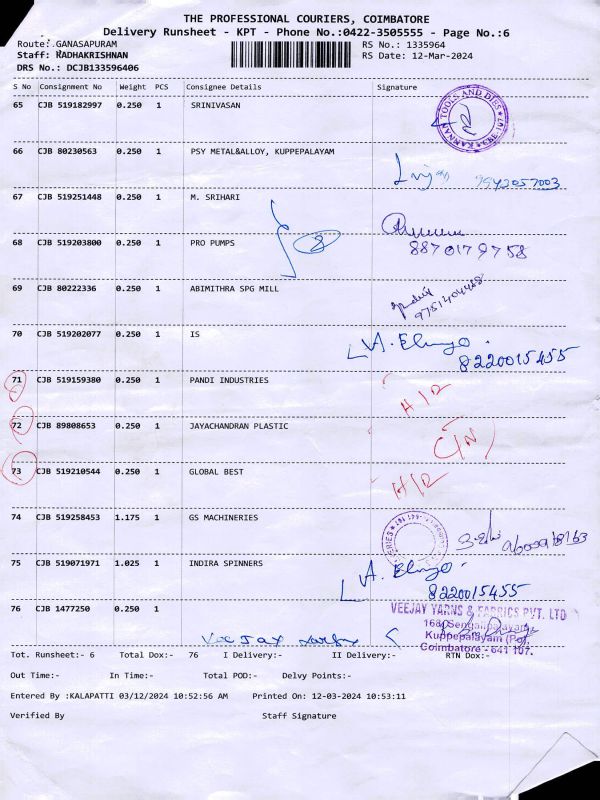 THE PROFESSIONAL COURIERS, COIMBATORE
Delivery Runsheet - KPT - Phone No.:0422-3505555 - Page No.:6
Route: GANASAPURAM RS No.: 1335964
Staff: RADHAKRISHNAN RS Date: 12-Mar-2024
DRS No.: DCJB133596406
S No Consignment No Weight PCS Consignee Details Signature
65 CJB 519182997 0.250 1 SRINIVASAN KANNAN TOOLS AND DIES
66 CJB 80230563 0.250 1 PSY METAL&ALLOY, KUPPEPALAYAM
9942057003
67 CJB 519251448 0.250 1 M. SRIHARI
8870179758
68 CJB 519203800 0.250 1 PRO PUMPS 8
69 CJB 80222336 0.250 1 ABIMITHRA SPG MILL
9751404448
70 CJB 519202077 0.250 1 IS A. Elango
8220015455
71 CJB 519159380 0.250 1 PANDI INDUSTRIES H/R
72 CJB 89808653 0.250 1 JAYACHANDRAN PLASTIC C/N
73 CJB 519210544 0.250 1 GLOBAL BEST H/R
74 CJB 519258453 1.175 1 GS MACHINERIES
75 CJB 519071971 1.025 1 INDIRA SPINNERS A. Elango
8220015455
76 CJB 1477250 0.250 1 VEEJAY YARNS & FABRICS PVT. LTD
Kuppepalayam (Po),
Coimbatore - 641 107.
Tot. Runsheet:- 6 Total Dox:- 76 I Delivery:- II Delivery:- RTN Dox:-
Out Time:- In Time:- Total POD:- Delvy Points:-
Entered By :KALAPATTI 03/12/2024 10:52:56 AM Printed On: 12-03-2024 10:53:11
Verified By Staff Signature